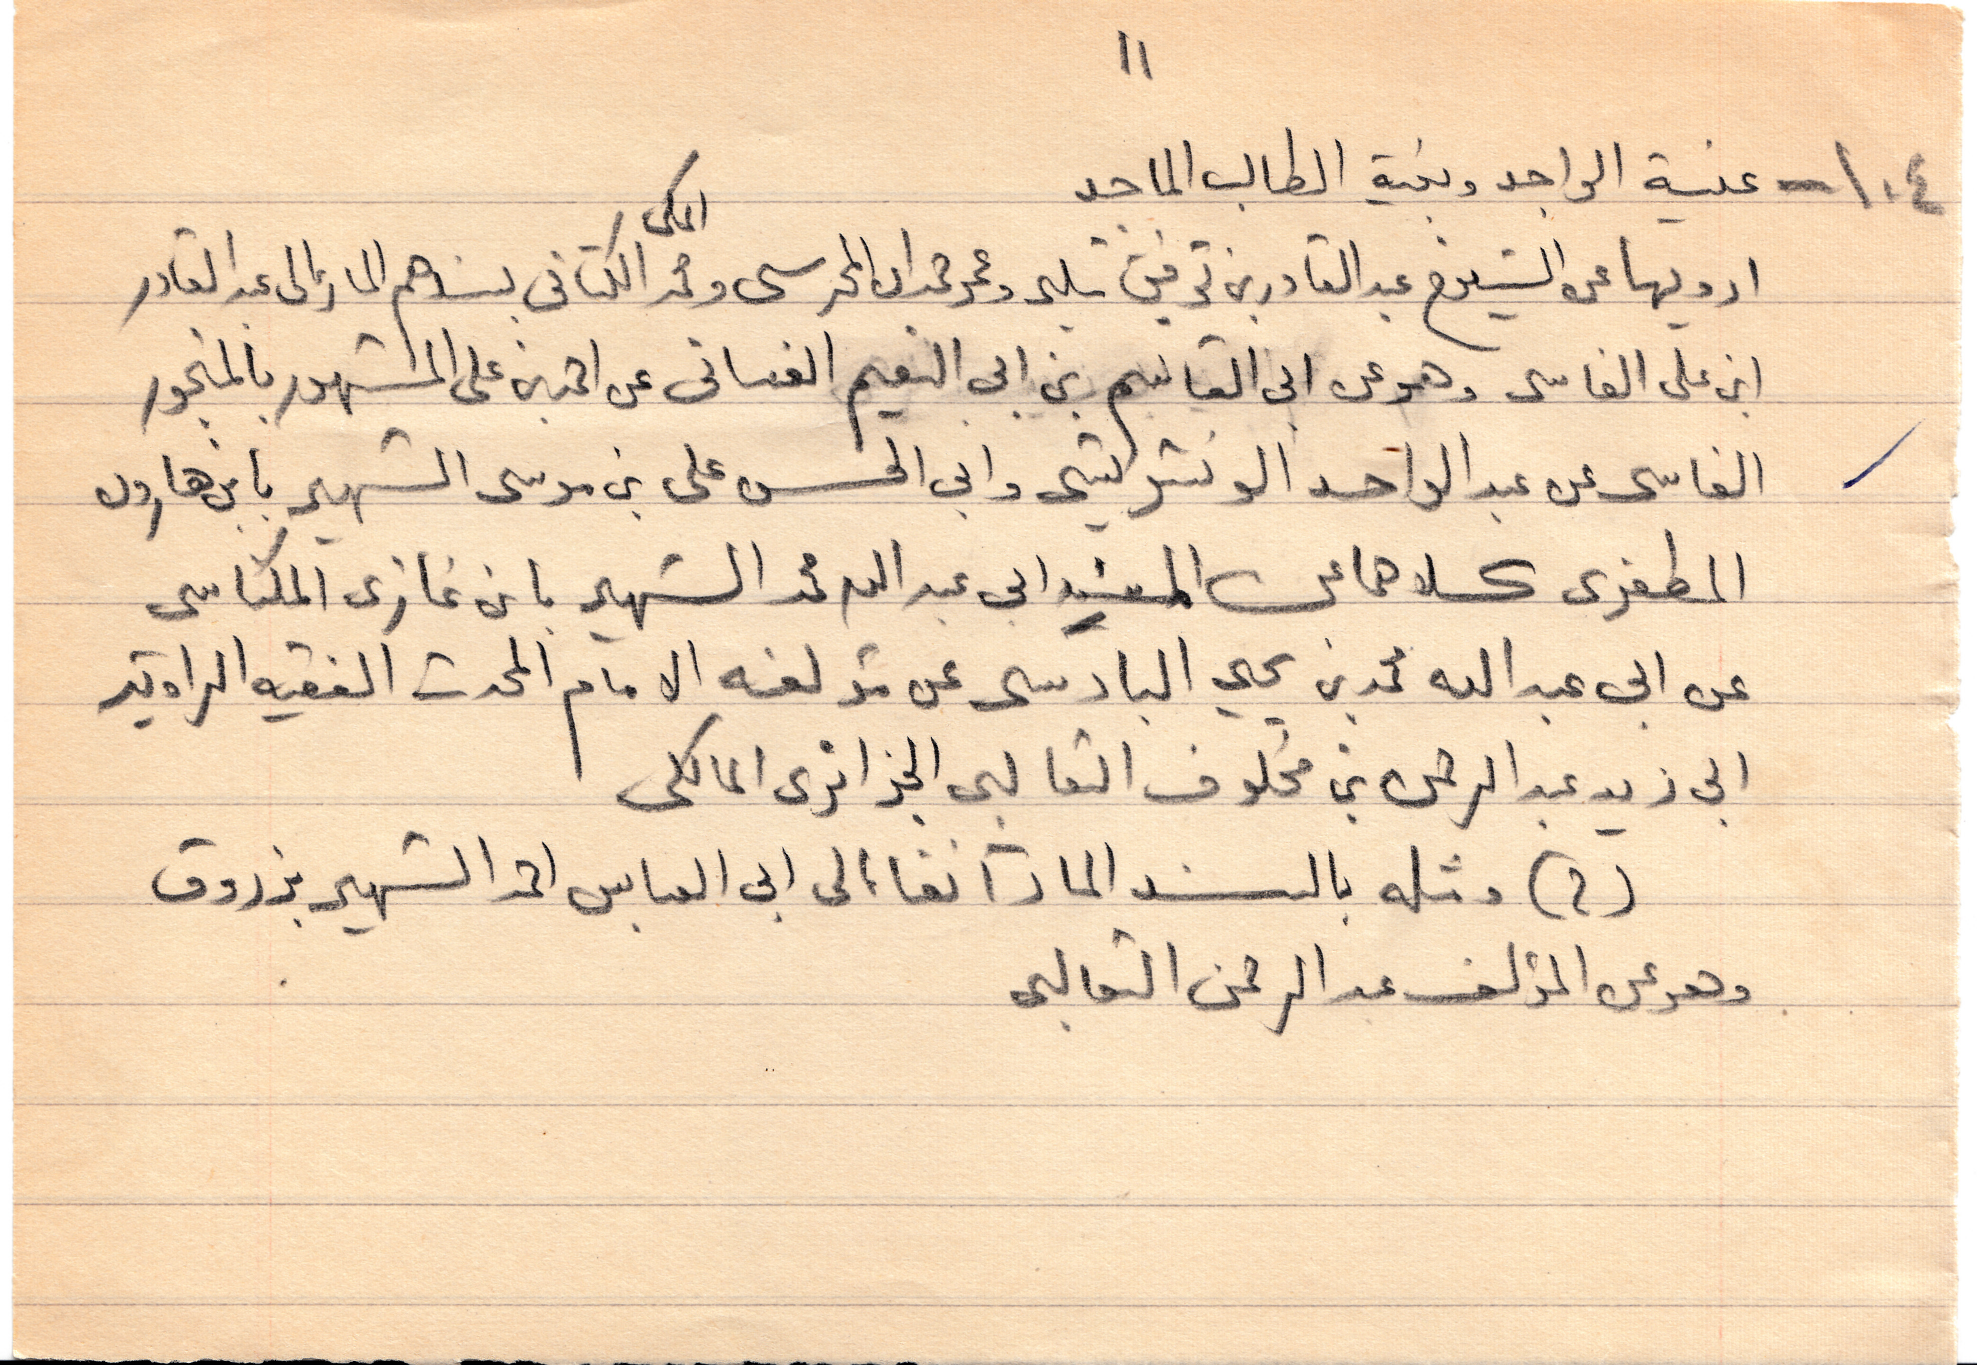 ١١
١٠٤ - غنية الواجد وبغية الطالب الماجد
المكى
ارويها عن الشيوخ عبد القادر بن توفيق شلبى وعمر حمدان المحرسى ومحمد الكتانى بسندهم المار إلى عبد القادر
ابن على الفاسى وهو عن ابى القاسم بن ابى النعيم الغسانى عن احمد بن على المشهور بالمنجور
الفاسى عن عبد الواحد الونشريسى وابى الحسن على بن موسى الشهير بابن هارون
المطغرى كلاهما عن المسند ابى عبد الله محمد الشهير بابن غازى المكناسى
عن ابى عبد الله محمد بن يحيى البادسى عن مؤلفه الامام المحدث الفقيه الراوية
ابى زيد عبد الرحمن بن مخلوف الثعالبى الجزائرى المالكى
(٢) ومثله بالسند المار آنفا إلى ابى العباس احمد الشهير بزروق
وهو عن المؤلف عبد الرحمن الثعالبى